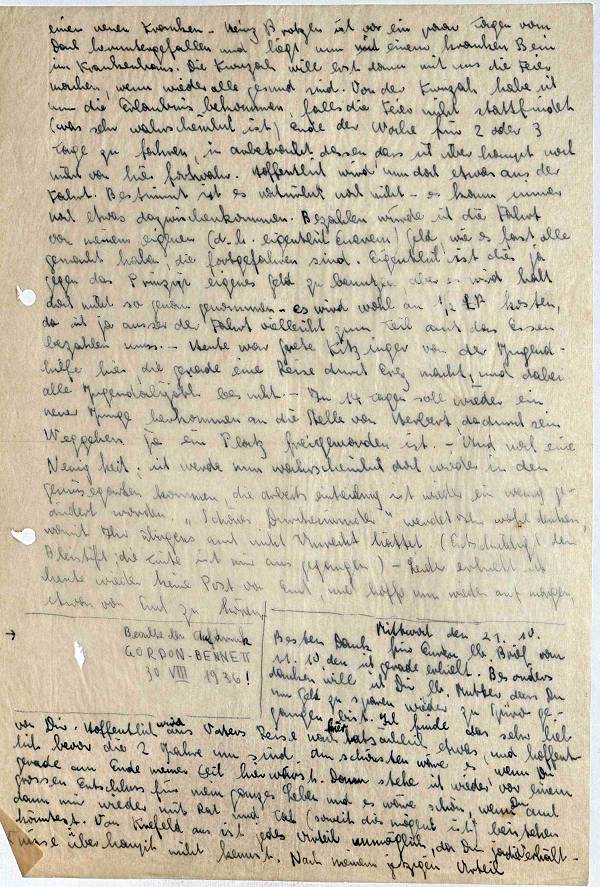 einen neuen Kranken. - Heinz Brotzen ist vor ein paar Tagen vom
Dach heruntergefallen und liegt nun mit einem kranken Bein
im Krankenhaus. Die Kwuzah will erst dann mit uns die Feier
machen, wenn wieder alle gesund sind. Von der Kwuzah habe ich
nun die Erlaubnis bekommen, falls die Feier nicht stattfindet
(was sehr wahrscheinlich ist) Ende der Woche für 2 oder 3
Tage zu fahren, in anbetracht dessen dass ich überhaupt noch
von hier fortwar. Hoffentlich wird nun doch etwas aus der
Fahrt. Bestimmt ist es natürlich noch nicht - es kann immer
noch etwas dazwischenkommen. Bezahlen würde ich die Fahrt
von meinem eigenen (d.h. eigentlich Eurem) Geld, wie es fast alle
gemacht haben, die fortgefahren sind. Eigentlich ist dies ja
gegen das Prinzip eigenes Geld zu benutzen aber es wird halt
doch nicht so genau genommen - es wird wohl an 1/2 LP kosten,
da ich ja ausser der Fahrt vielleicht zum Teil auch das Essen
bezahlen muss. - Heute war Grete Kitzinger von der Jugend-
hilfe hier, die gerade eine Reise durch Erez macht, und dabei
alle Jugendalijoth besucht. - In 14 Tagen soll wieder ein
neuer Junge herkommen an die Stelle von Herbert, da durch sein
Weggehen ja ein Platz freigeworden ist. - Und noch eine
Neuigkeit: ich werde nun wahrscheinlich doch wieder in den
Gemüsegarten kommen, die Arbeitseinteilung ist wieder ein wenig ge-
ändert worden. "Schönes Durcheinander" werdet Ihr wohl denken,
womit Ihr übrigens auch nicht Unrecht hättet. (Entschuldigt den
Bleistift; die Tinte ist mir ausgegangen) - Leider erhielt ich
heute wieder keine Post von Euch, und hoffe nun wieder auf morgen,
etwas von Euch zu hören.
Beachte den Aufdruck
GORDON-BENNETT
30 VIII 1936!
Mittwoch den 21. 10.
Besten Dank für Euren lb. Brief vom
11. 10. den ich gerade erhielt. Besonders
danken will ich Dir lb. Mutter dass Du
um Geld zu sparen wieder zu ge-
gangen bist. Ich finde das sehr lieb
von Dir. Hoffentlich wird aus Vaters Reise nach hier tatsächlich etwas, und hoffent-
lich bevor die 2 Jahre um sind. Am schönsten wäre es wenn Du
gerade am Ende meiner Zeit hier wärst. Dann stehe ich wieder vor einem
grossen Entschluss für mein ganzes Leben und es wäre schön, wenn Du auch
dann mir wieder mit Rat und Tat (soweit dies möglich ist) beistehen
könntest. Von Krefeld aus ist jedes Urteil unmöglich, da Du ja die Verhält-
nisse überhaupt nicht kennst. Nach meinem jetzigen Urteil